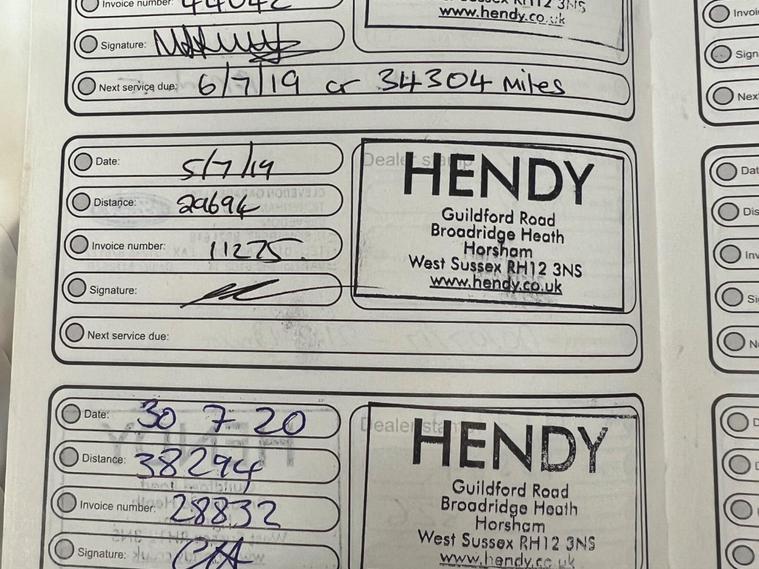 Invoice number: 44042
West Sussex RH12 3NS
www.hendy.co.uk
Signature:
Next service due: 6/7/19 or 34304 Miles
Date: 5/7/19
Dealer stamp
HENDY
Distance: 29694
Guildford Road
Broadridge Heath
Invoice number: 11275
Horsham
West Sussex RH12 3NS
Signature:
www.hendy.co.uk
Next service due:
Date: 30 7 20
Dealer stamp
HENDY
Distance: 38294
Guildford Road
Invoice number: 28832
Broadridge Heath
Horsham
West Sussex RH12 3NS
Signature:
www.hendy.co.uk